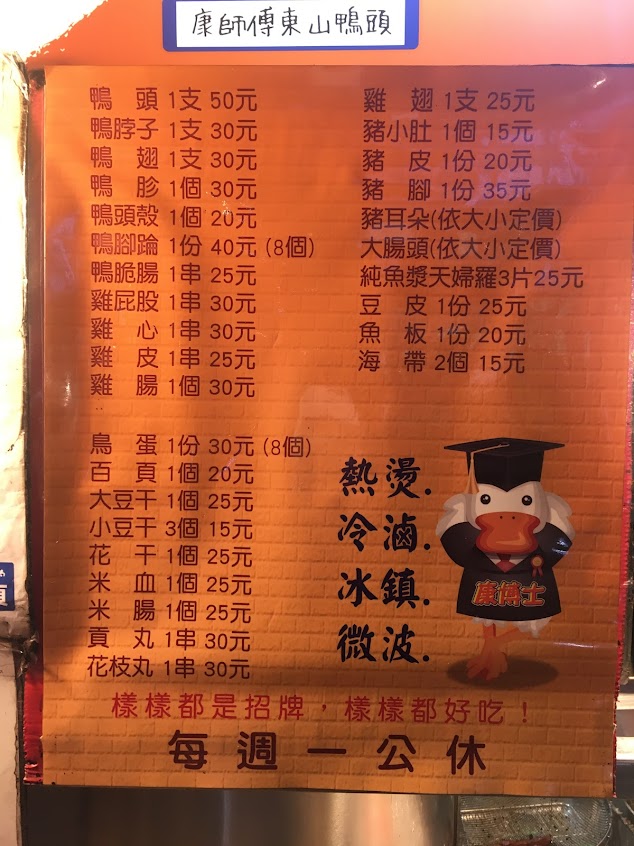 康師傅東山鴨頭
鴨 頭 1支 50元
鴨脖子 1支 30元
鴨 翅 1支 30元
鴨 胗 1個 30元
鴨頭殼 1個 20元
鴨腳踚 1份 40元 (8個)
鴨脆腸 1串 25元
雞屁股 1串 30元
雞 心 1串 30元
雞 皮 1串 25元
雞 腸 1個 30元
鳥 蛋 1份 30元 (8個)
百 頁 1個 20元
大豆干 1個 25元
小豆干 3個 15元
花 干 1個 25元
米 血 1個 25元
米 腸 1個 25元
貢 丸 1串 30元
花枝丸 1串 30元
雞 翅 1支 25元
豬小肚 1個 15元
豬 皮 1份 20元
豬 腳 1份 35元
豬耳朵(依大小定價)
大腸頭(依大小定價)
純魚漿天婦羅3片25元
豆 皮 1份 25元
魚 板 1份 20元
海 帶 2個 15元
熱燙.
冷滷.
冰鎮.
微波.
康博士
樣樣都是招牌，樣樣都好吃！
每週一公休